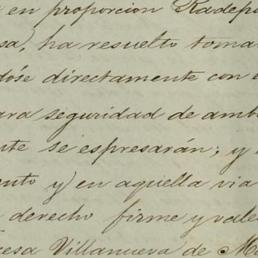 en proporcion
sa, ha resuelto toma
dóse directamente con e
ara seguridad de amb
nte se espresarán; y
ento y en aquella via
derecho firme y vale
esa Villanueva de M